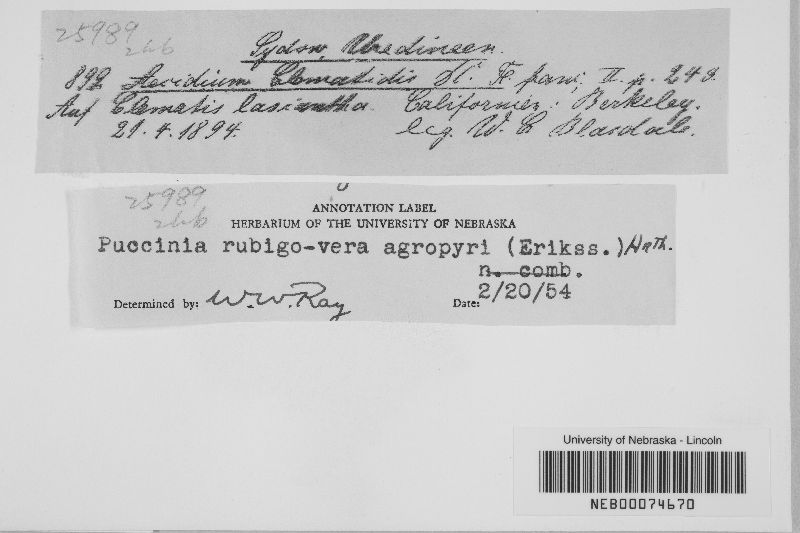 25989
266
Sydow, Uredineen.
892 Aecidium Clematidis
Auf Clematis lasiantha. Californien: Berkeley.
21.4.1894. leg. W. C. Blasdale.
25989
266
ANNOTATION LABEL
HERBARIUM OF THE UNIVERSITY OF NEBRASKA
Puccinia rubigo-vera agropyri (Erikss.) Arth.
n. comb.
Determined by: W.W. Ray Date: 2/20/54
University of Nebraska - Lincoln
NEB00074670